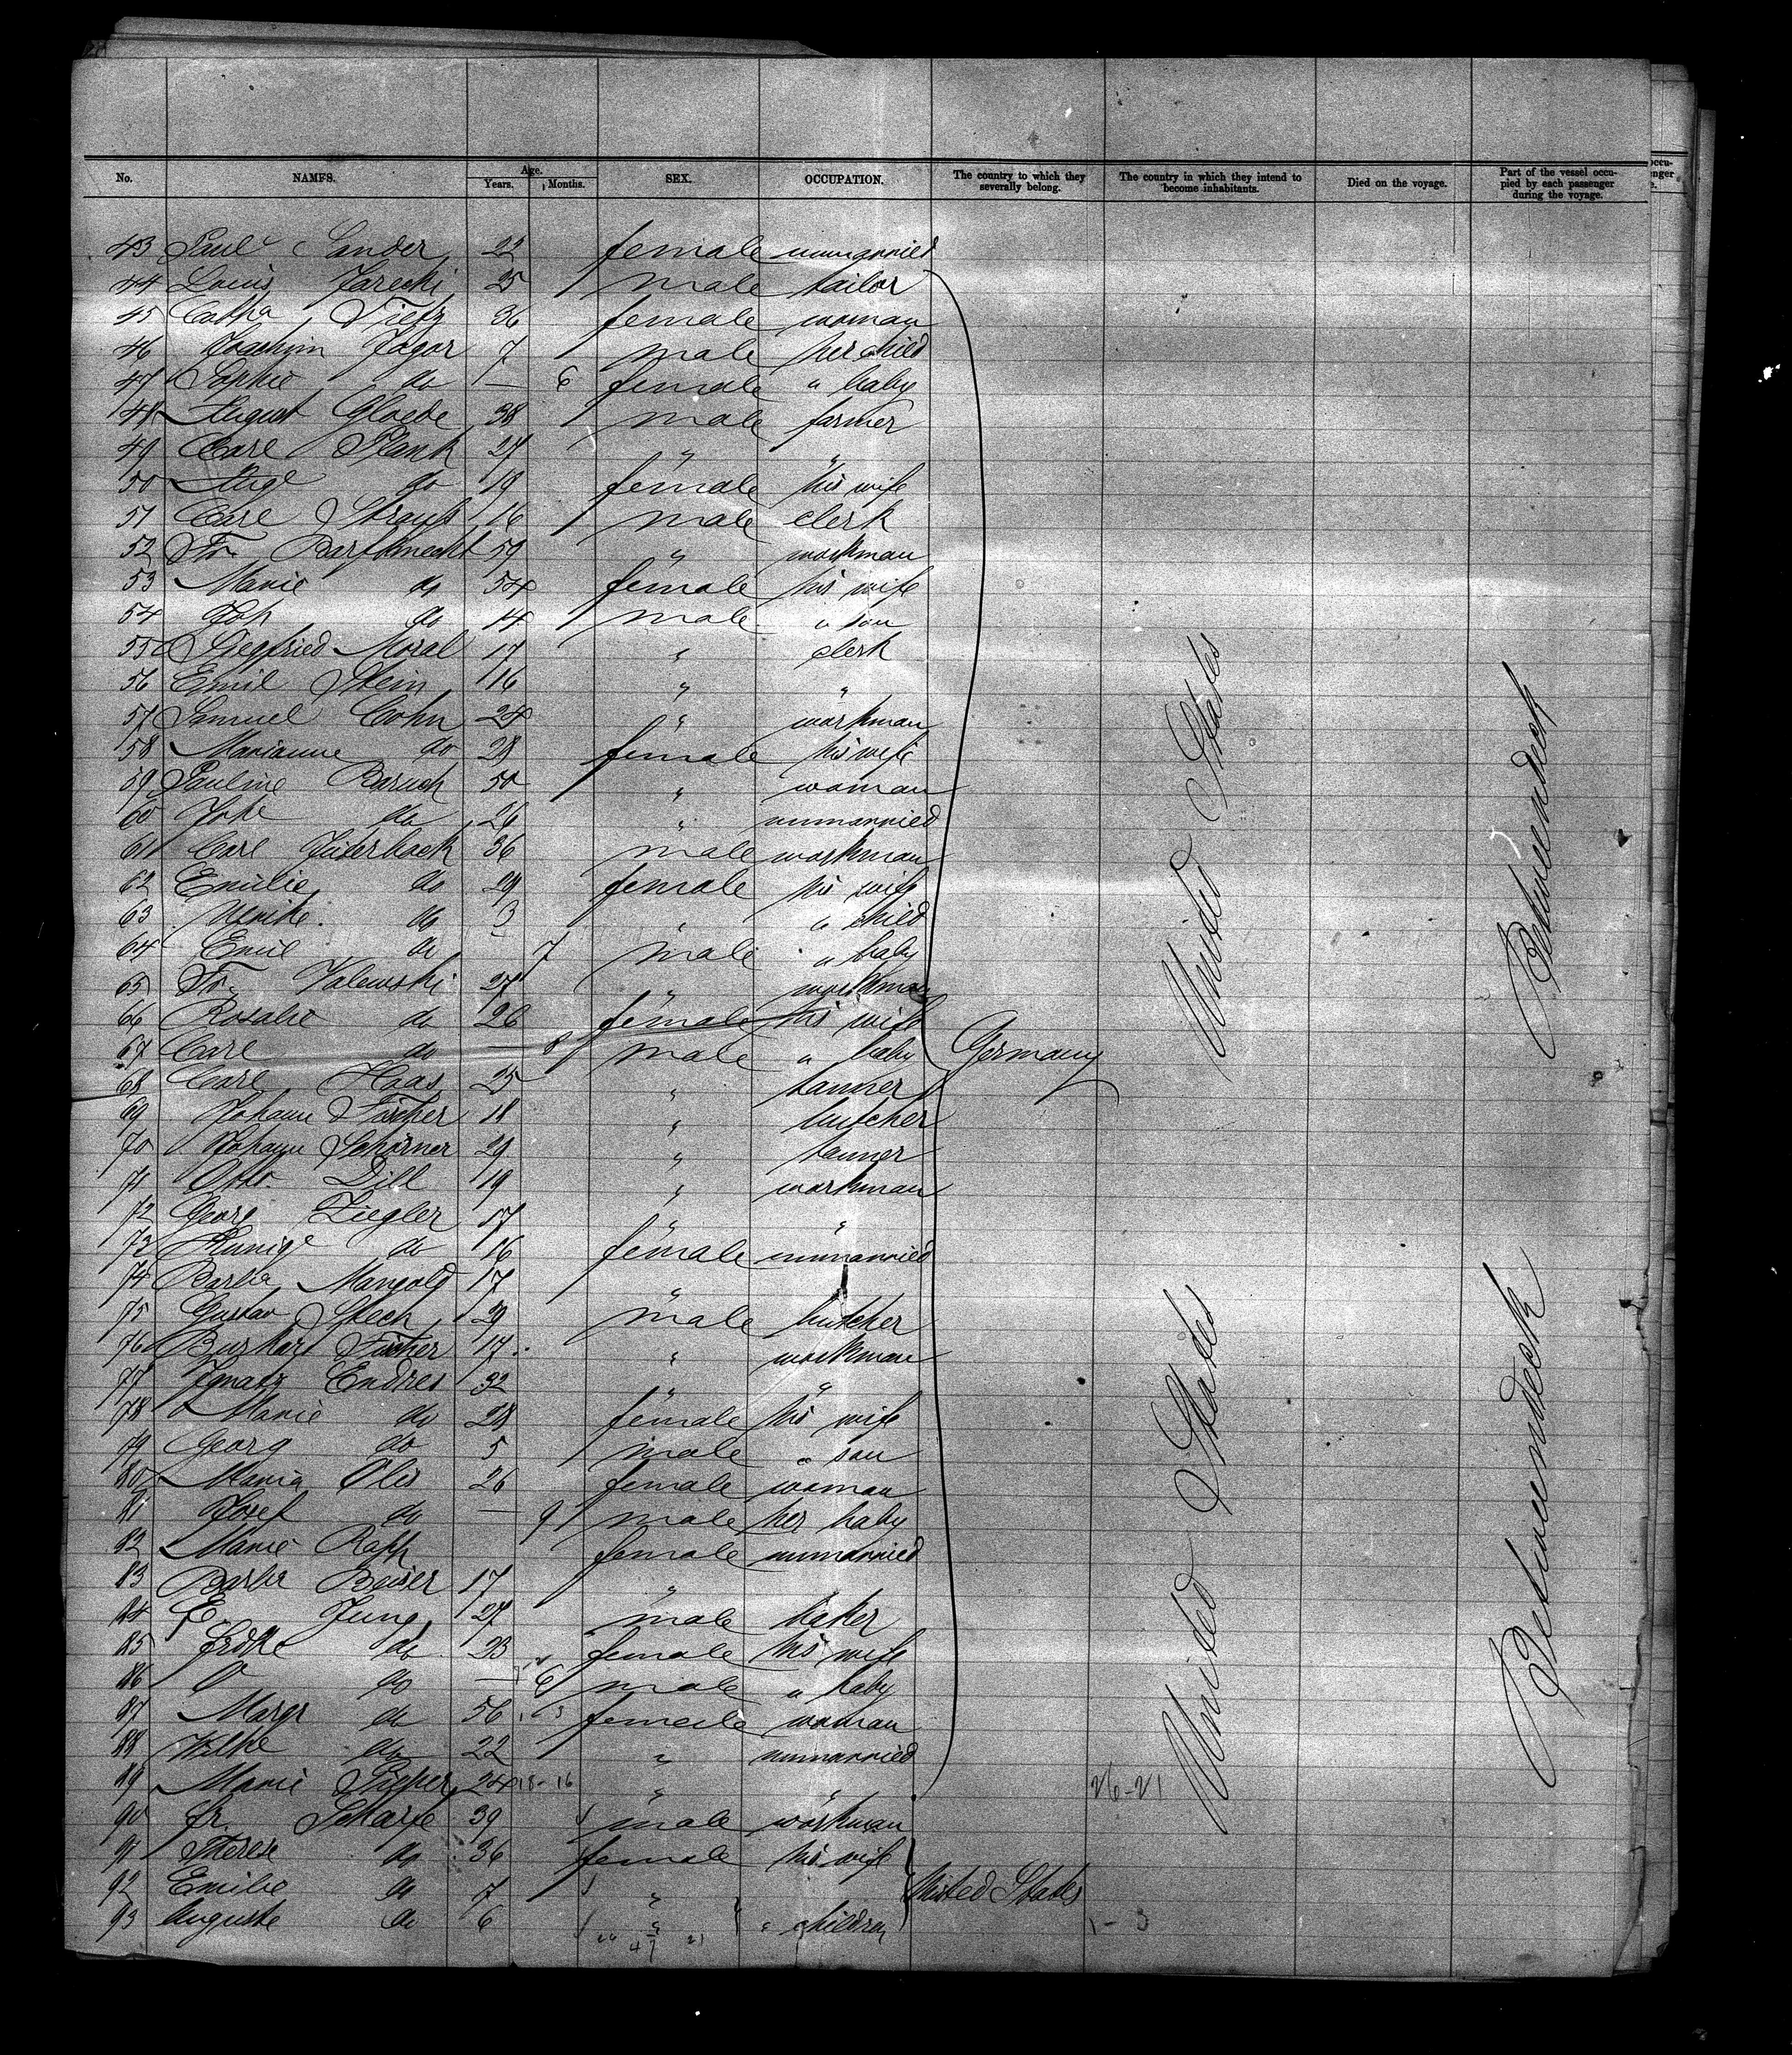 No. NAMES. Age. Years. Months. SEX. OCCUPATION. The country to which they severally belong. The country in which they intend to become inhabitants. Died on the voyage. Part of the vessel occupied by each passenger during the voyage.
43 Paul Sander 22 female unmarried
44 Louis Jarecki 25 male tailor
45 Catha Tietz 36 female woman
46 Joachim Jagor 7 male her child
47 Sophie do — 6 female " baby
48 August Gloede 38 male farmer
49 Carl Plank 27 " "
50 Auge do 19 female his wife
51 Carl Strauß 16 male clerk
52 Fr. Barfknecht 59 " workman
53 Marie do 54 female his wife
54 Joh do 14 male " son
55 Siegfried Moral 17 " clerk
56 Emil Stein 16 " "
57 Samuel Cohn 24 " workman
58 Marianne do 28 female his wife
59 Pauline Baruch 50 " woman
60 do 26 " unmarried
61 Carl Füderback 36 male workman
62 Emilie do 29 female his wife
63 Ulrike do 3 " " child
64 Emil do 7 male " baby
65 Fr. Valewski 27 " workman
66 Rosalie do 26 female his wife
67 Carl do — 8 male " baby
Germany
68 Carl Haas 25 " tanner
69 Johann Fischer 18 " butcher
70 Johann Schörner 29 " tanner
71 Otto Dill 19 " workman
72 Georg Ziegler 57 " "
73 Kunige do 16 female unmarried
74 Barba Mangold 17 "
75 Gustav Stech 29 male butcher
76 Burkart Fischer 17 " workman
77 Ignatz Endres 32 " "
78 Marie do 28 female his wife
79 Georg do 5 male " son
80 Maria Olis 26 female woman
81 Josef do — 9 male her baby
82 Marie Rapp female unmarried
83 Barba Beiser 17 "
84 E. Jung 27 male baker
85 do 23 female his wife
86 O do — 6 male " baby
87 Margr do 56 female woman
88 Wilhe do 22 " unmarried
89 Marie Pieper 24 18-16 " " 26-21
90 Fr. Scharfe 39 male workman
91 Therese do 36 female his wife
92 Emilie do 7 "
United States
93 Auguste do 6 " " children 1-3
47 21
United States
United States
Betweendeck
Betweendeck